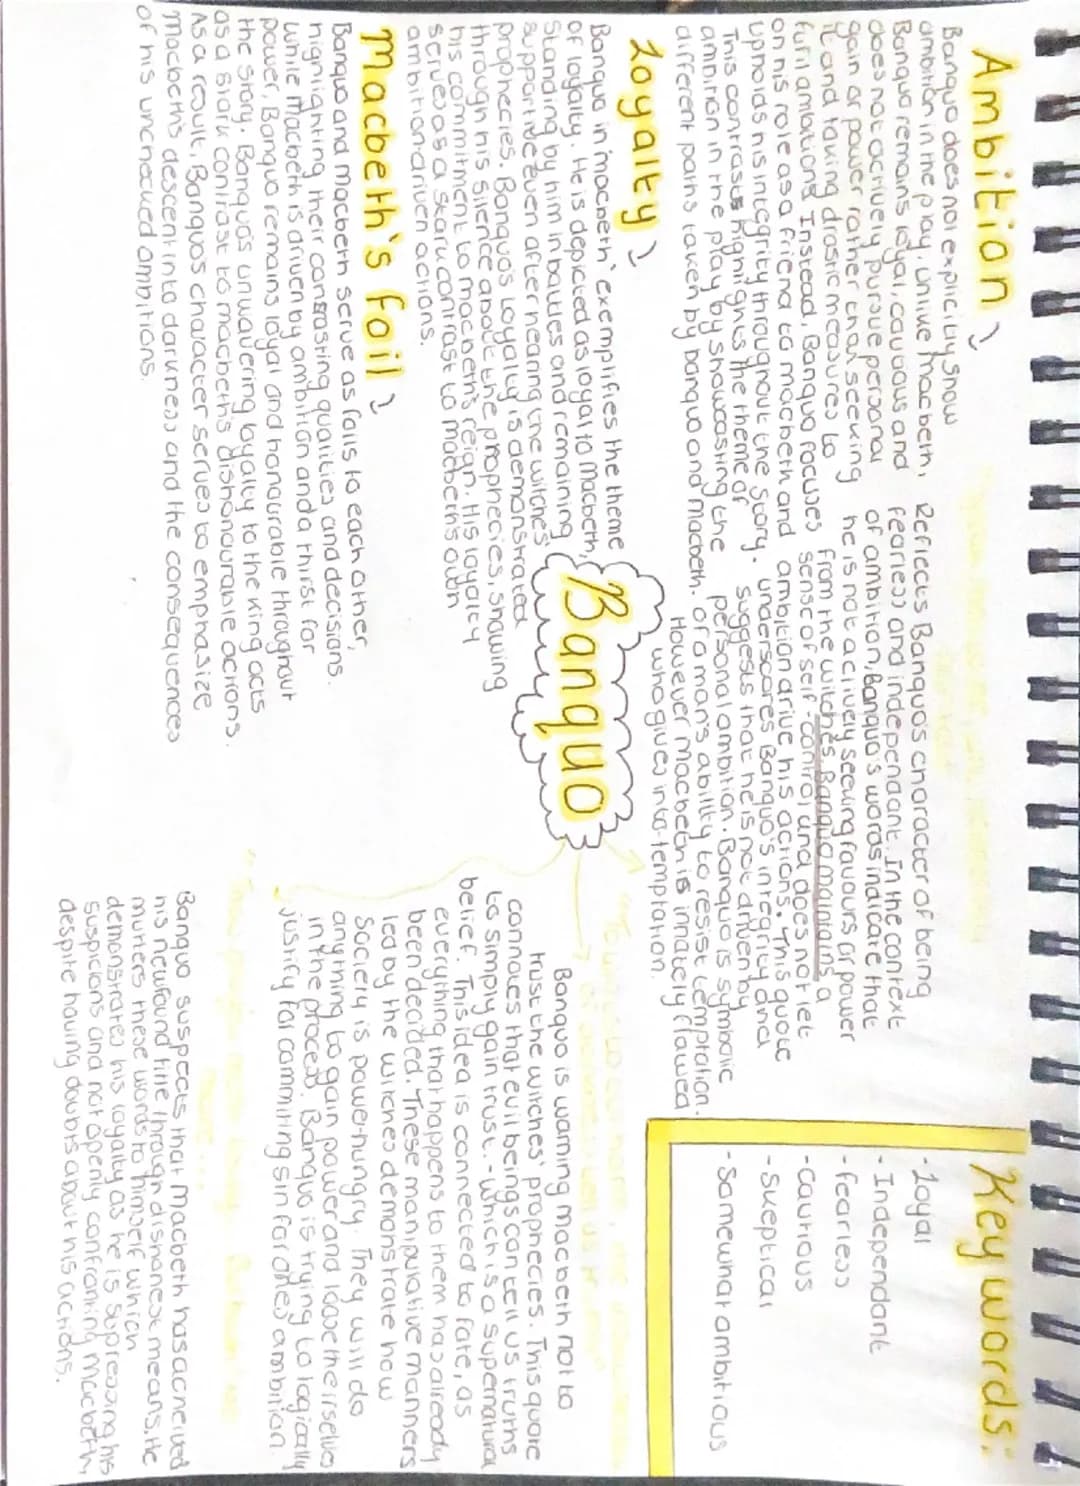 Ambition
Banquo does not explicitly show
ambition in the play. Unlike Macbeth,
Banquo remains loyal, cautious and
does not actively pursue personal
gain or power rather than seeking
it and taking drastic measures to
furil ambitions. Instead, Banquo focuses
on his role as a friend to macbeth and
upholds his integrity throughout the story.
This contrasts highlights the theme of
ambition in the play by showcasting the
different paths taken by banquo and macbeth.
Loyalty
Banquo in 'macbeth' exemplifies the theme
of loyalty. He is depicted as loyal to macbeth,
standing by him in battles and remaining
supportive even after hearing the witches'
prophecies. Banquo's loyalty is demonstrated
through his silence about the prophecies, showing
his commitment to macbeth's reign. His loyalty
serves as a stark contrast to macbeth's own
ambition driven actions.
Macbeth's foil
Banquo and Macbeth serve as foils to each other,
highlighting their contrasting qualities and decisions.
While Macbeth is driven by ambition and a thirst for
power, Banquo remains loyal and honourable throughout
the story. Banquo's unwavering loyalty to the king acts
as a stark contrast to macbeth's dishonourable actions.
As a result, Banquo's character serves to emphasize
macbeth's descent into darkness and the consequences
of his unchecked ambitions.
Banquo
Reflects Banquo's character of being
fearless and independant. In the context
of ambition, Banquo's words indicate that
he is not actively seeking favours or power
from the witches. Banquo maintains a
sense of self-control and does not let
ambition drive his actions. This quote
underscores Banquo's integrity and
suggests that he is not driven by
personal ambition. Banquo is symbolic
of a man's ability to resist temptation.
However Macbeth is innately flawed
who gives into temptation.
Key words:
-Loyal
-Independant
-fearless
-cautious
-skeptical
-Somewhat ambitious
Banquo is warning macbeth not to
trust the witches' prophecies. This quote
connotes that evil beings can tell us truths
to simply gain trust.-which is a supernatural
belief. This idea is connected to fate, as
everything that happens to them has already
been decided. These manipulative manners
led by the witches demonstrate how
Society is power-hungry. They will do
anything to gain power and loose theirselves
in the process. Banquo is trying to logically
justify for commiting sin for one's ambition.
Banquo suspects that Macbeth has achieved
his newfound title through dishonest means. He
mutters these words to himself which
demonstrates his loyalty as he is supressing his
suspicions and not openly confronting macbeth,
despite having doubts about his actions.